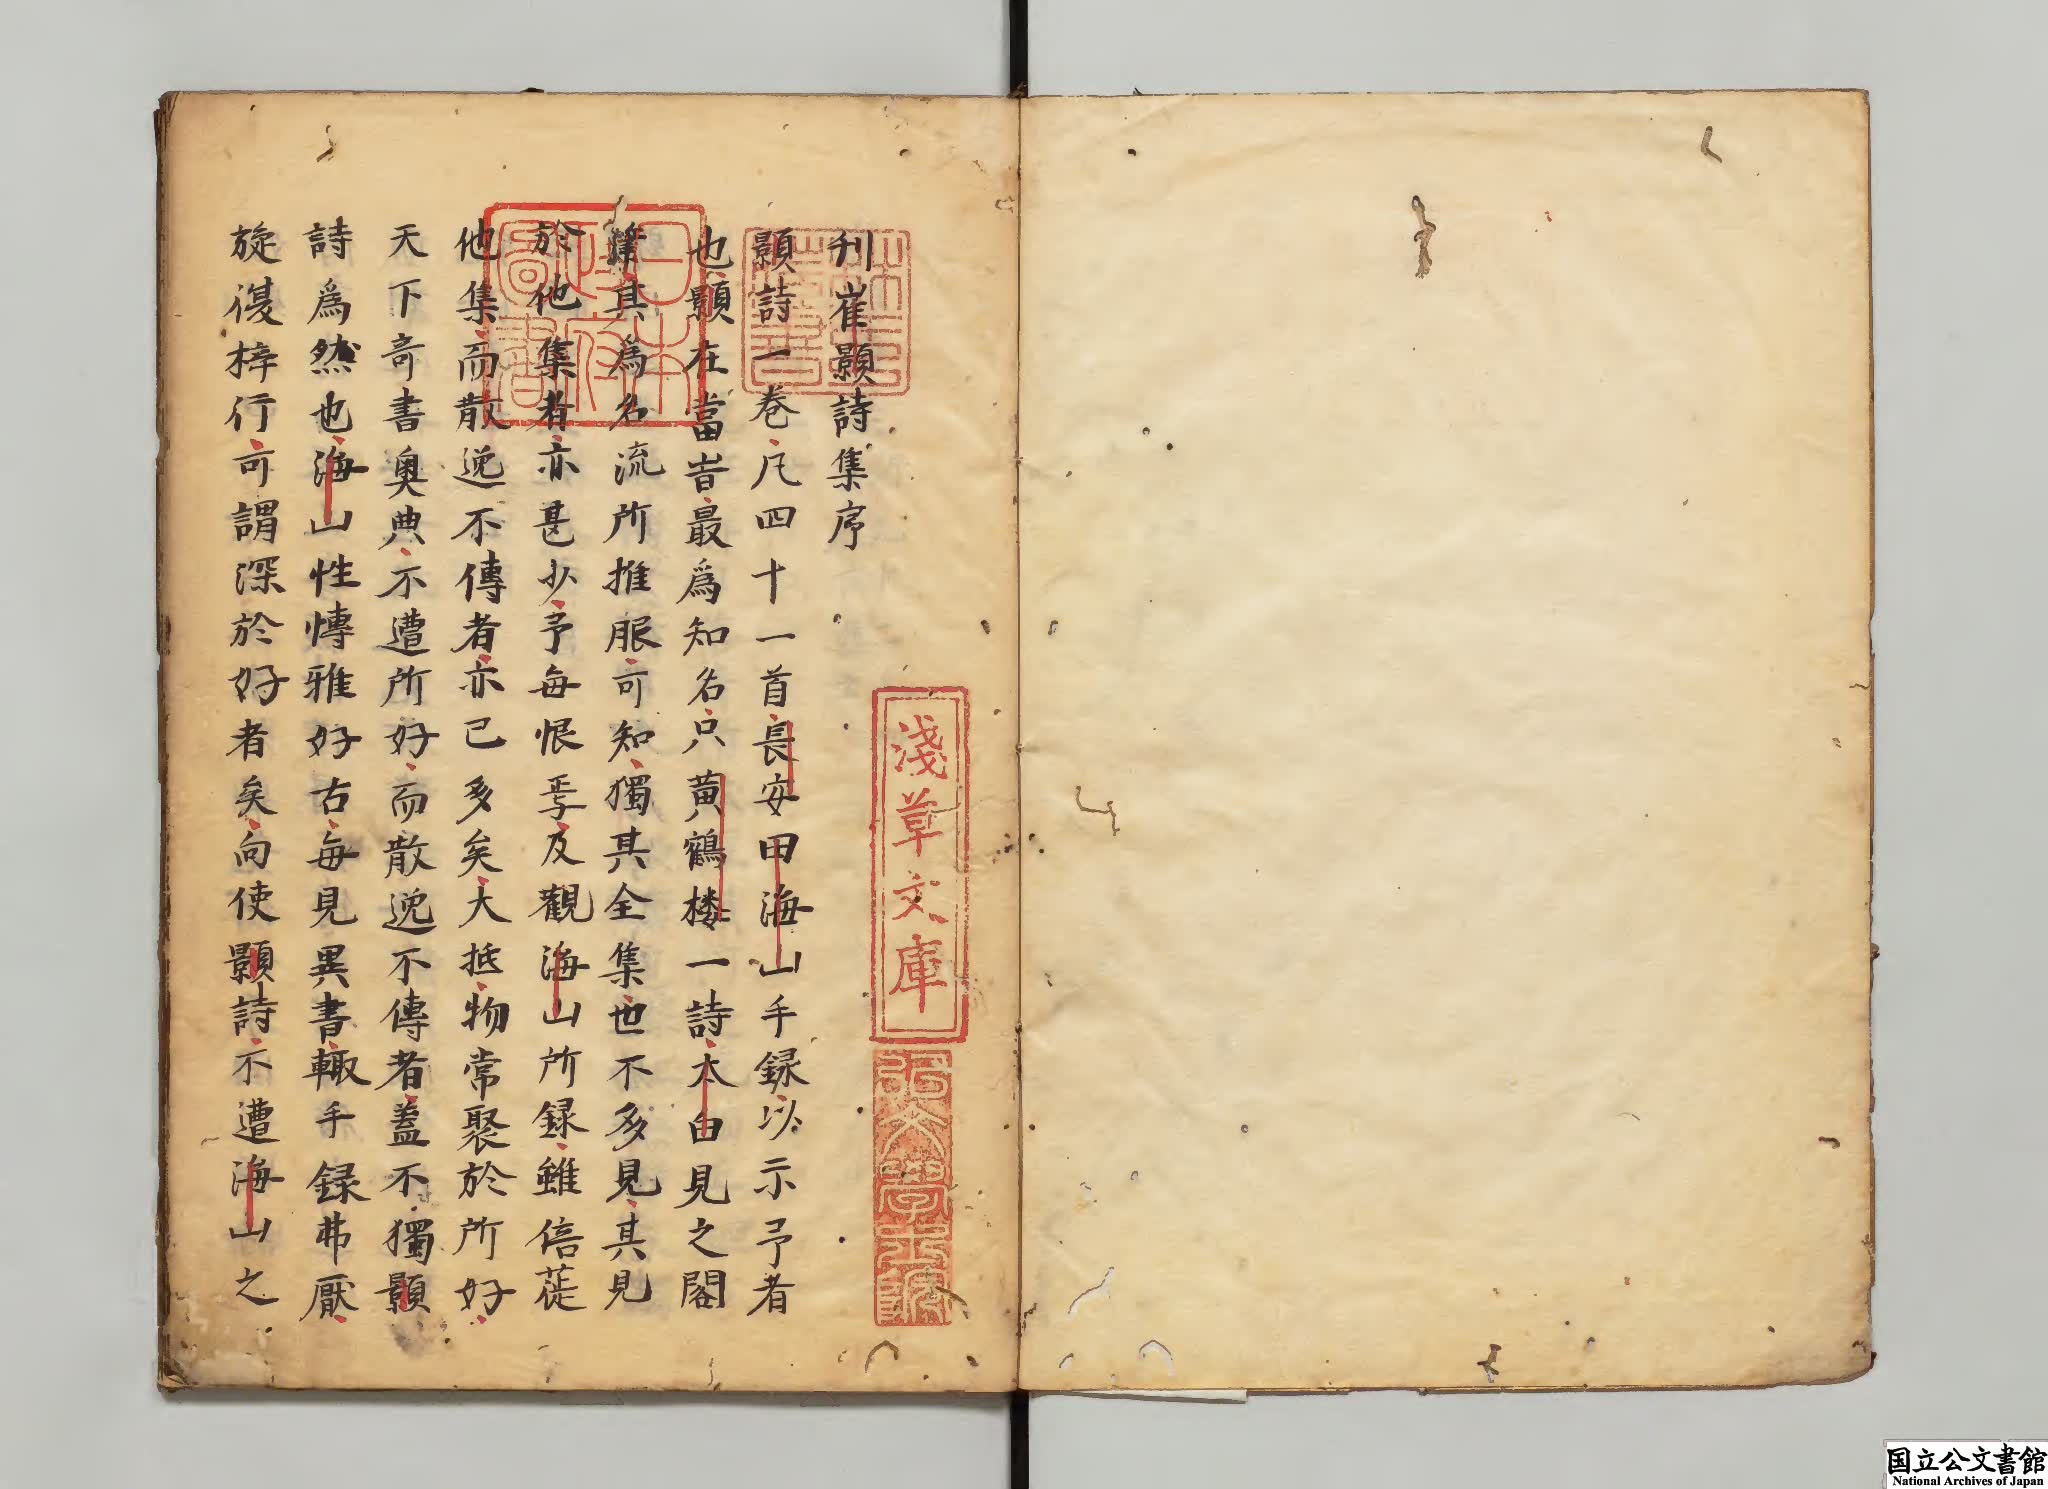 刊崔顥詩集序
顥詩一巻凡四十一首長安田海山手録以示予者
也顥在當旹最爲知名只黄鶴楼一詩太白見之閣
筆其爲名流所推服可知獨其全集也不多見其見
於他集者亦甚少予每恨焉及觀海山所録雖倍蓰
他集而散逸不傳者亦已多矣大抵物常聚於所好
天下竒書奥典不遭所好而散逸不傳者蓋不獨顥
詩爲然也海山性慱雅好古每見異書輙手録弗厭
旋復梓行可謂深於好者矣向使顥詩不遭海山之
淺草文庫
日本政府圖書
林氏藏書
國立公文書館
National Archives of Japan